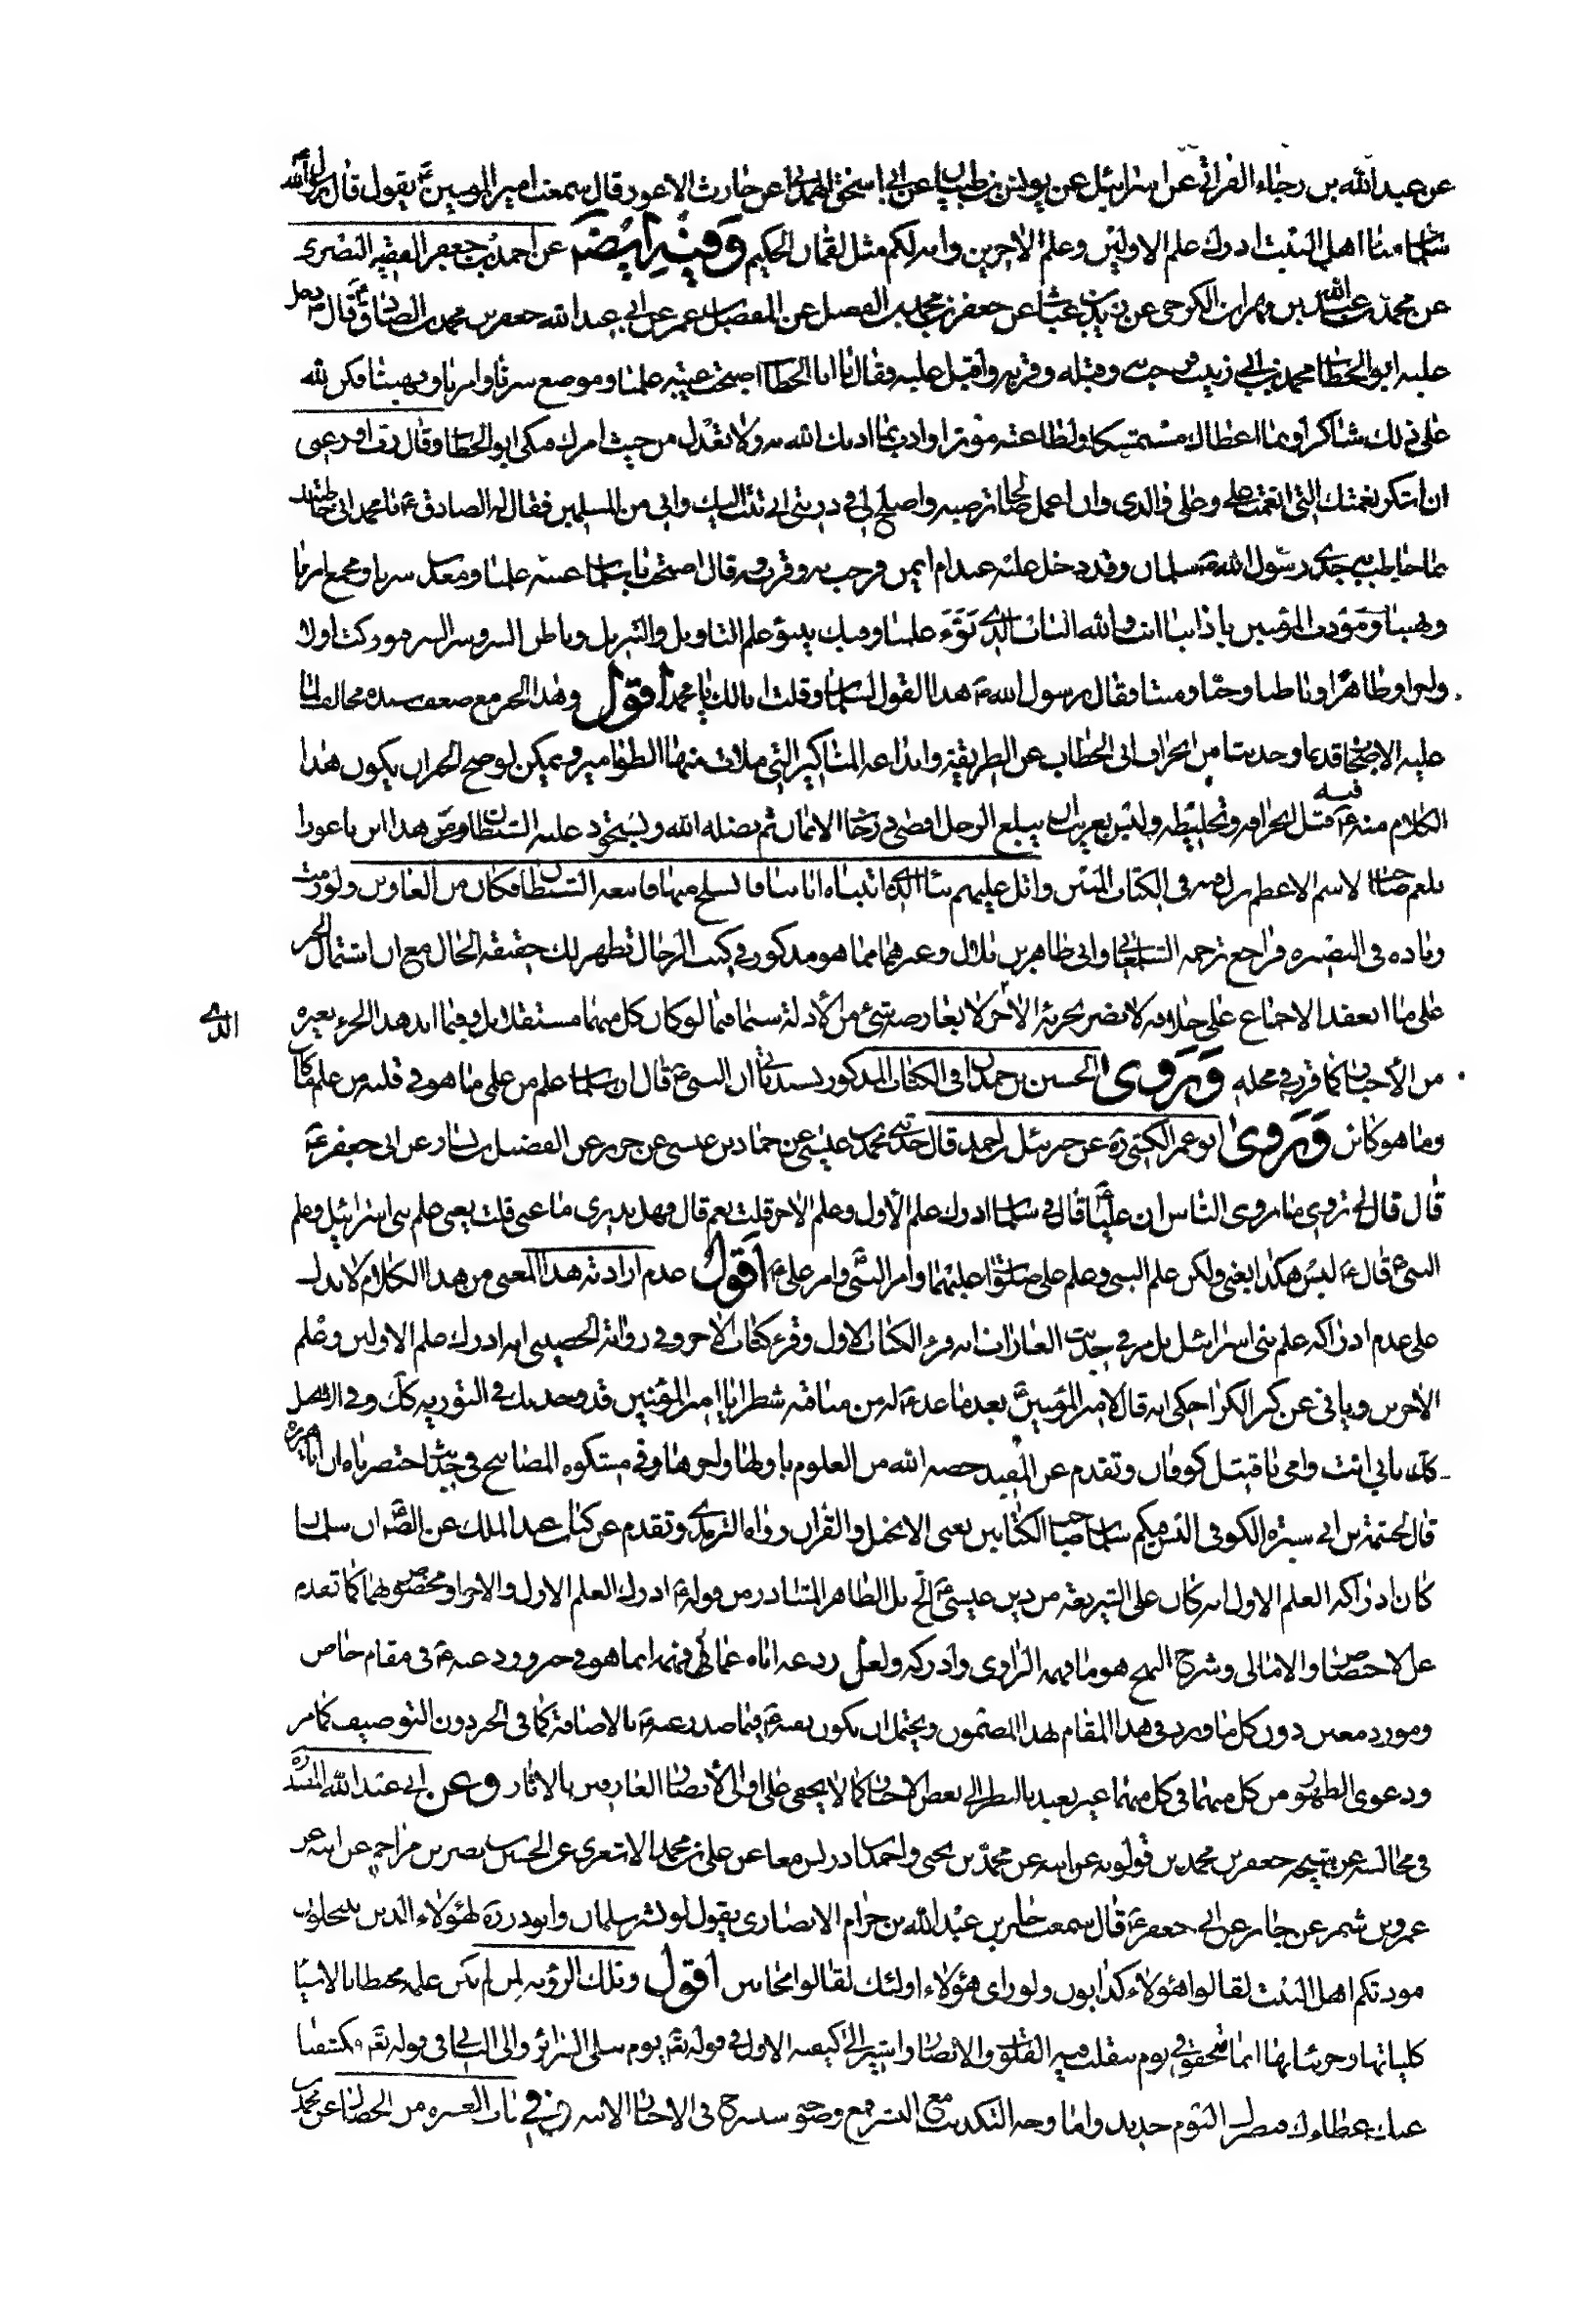 عن عبد الله بن رجاء الغراني عن اسرائيل عن يونس بن ظبيان عن ابي اسحق الهمداني عن حارث الاعور قال سمعت امير المؤمنين ع يقول قال رسول الله
سلمان منا اهل البيت ادرك علم الاولين وعلم الاخرين وانه لكم مثل لقمان الحكيم وفيه ايضا عن احمد بن جعفر الفقيه البصري
عن محمد بن عبد الله بن مهران الكرخي عن عن جعفر بن محمد بن الفضل عن المفضل بن عمر عن ابي عبد الله جعفر بن محمد الصادق ع قال دخل
عليه ابو الخطاب محمد بن ابي زينب وقبله وقربه واقبل عليه وقال يا ابا الخطاب اصبحت عيبة علمنا وموضع سرنا وامرنا ونهينا فكن لله
على ذلك شاكرا وبما اعطاك مستمسكا ولطاعته مؤثرا وادب بما ادبك الله به ولا تعدل من حيث امرك فبكى ابو الخطاب وقال
ان اشكر نعمتك التي انعمت علي وعلى والدي وان اعمل صالحا ترضيه واصلح لي في ذريتي اني تبت اليك واني من المسلمين فقال له الصادق ع يا محمد اني خاطبتك
بما خاطب به جدي رسول الله ص سلمان وقد دخل عليه عبد ام ايمن فرحب به وقربه وقال اصبحت يا سلمان عيبة علمنا ومعدن سرنا ومجمع امرنا
ونهينا ومؤدب المؤمنين بادابنا انت والله الباب الذي يؤدي علمنا وفيك ينبؤ علم التاويل والتنزيل وباطن السر وسر السر فبوركت اولا
واخرا وظاهرا وباطنا وحيا وميتا وقال رسول الله ص هذا القول لسلمان وقلت انا لك يا محمد اقول وهذا الخبر مع ضعف سنده مخالف لما
عليه الاصحاب قديما وحديثا من انحراف ابي الخطاب عن الطريقة وابداعه المناكير التي ملات منها الطوامير ويمكن لو صح الخبر ان يكون هذا
الكلام منه ع فيه قبل انحرافه وتخليطه وليس بغريب ان يبلغ الرجل اقصى درجات الايمان ثم يضله الله ويستحوذ عليه الشيطان ومن هذا ابن باعورا
بلعم صاحب الاسم الاعظم نزل فيه في الكتاب المبين واتل عليهم نبا الذي اتيناه اياتنا فانسلخ منها فاتبعه الشيطان فكان من الغاوين ولو رمت
زيادة في البصيرة فراجع ترجمة الشلمغاني وابي طاهر بن بلال وغيرهما مما هو مذكور في كتب الرجال تظهر لك حقيقة الحال مع ان اشتمال الخبر
على ما انعقد الاجماع على خلافه لا يضر بحجية الاخر لا يعارضه شئ من الادلة سيما فيما لو كان كل منهما مستقلا بل وفيما ايد هذا الجزء بغيره
الذي
من الاخبار كما قرر في محله وروى الحسين بن حمدان في الكتاب المذكور بسنده ان النبي ص قال ان سلمان علم من علمي ما هو في قلبه من علم ما كان
وما هو كائن وروى ابو عمر الكشي ره عن جبرئيل بن احمد قال حدثني محمد بن عيسى عن حماد بن عيسى عن حريز عن الفضيل بن يسار عن ابي جعفر ع
قال قال لي تروي ما يروي الناس ان عليا ع قال في سلمان ادرك علم الاول وعلم الاخر قلت نعم قال وهل يدري ما عنى قلت يعني علم بني اسرائيل وعلم
النبي ص قال ع ليس هكذا يعني ولكن علم النبي وعلم علي صلوات الله عليهما وامر النبي وامر علي ع اقول عدم ارادته هذا المعنى من هذا الكلام لا يدل
على عدم ادراكه علم بني اسرائيل بل مر في حديث العارات انه قرء الكتاب الاول وقرء كتاب الاخر وفي رواية الحضيني انه ادرك علم الاولين وعلم
الاخرين وياتي عن كنز الكراجكي انه قال لامير المؤمنين ع بعد ما عد ع له من مناقبه شطرا يا امير المؤمنين قد وجدتك في التورية كك وفي الانجيل
كك بابي انت وامي يا قتيل كوفان وتقدم عن المفيد خصه الله من العلوم باولها واخرها وفي مشكوة المصابيح في حديث اختصرناه ان ابا هريرة
قال لخيثمة بن ابي سبرة الكوفي اليس فيكم سلمان صاحب الكتابين يعني الانجيل والقران رواه الترمذي وتقدم عن كتاب عبد الملك عن الصادق ع ان سلمان
كان ادراكه العلم الاول انه كان على الشريعة من دين عيسى ع الخ بل الظاهر المتبادر من قوله ع ادرك العلم الاول والاخر كما تقدم
عن الاختصاص والامالي وشرح النهج هو ما فهمه الراوي وادركه ولعل ردعه اياه عما في فهمه انما هو في خبر ورد عنه ع في مقام خاص
ومورد معين دون كل ما ورد في هذا المقام بهذا المضمون ويحتمل ان يكون نفيه ع فيما صدر عنه ع بالاضافة كما في الخبر دون التوصيف كما مر
ودعوى الظهور من كل منهما في كل منهما غير بعيد بالنظر الى بعض الاخبار كما لا يخفى على اولي الابصار العارفين بالاثار وعن ابي عبد الله المفيد ره
في مجالسه عن شيخه جعفر بن محمد بن قولويه عن ابيه عن محمد بن يحيى واحمد بن ادريس معا عن علي بن محمد الاشعري عن الحسين بن نصر بن مزاحم عن ابيه عن
عمرو بن شمر عن جابر عن ابي جعفر ع قال سمعت جابر بن عبد الله بن حرام الانصاري يقول لو نشر سلمان وابو ذر ره لهؤلاء الذين ينتحلون
مودتكم اهل البيت لقالوا هؤلاء كذابون ولو راى هؤلاء اولئك لقالوا مجانين اقول وتلك الرؤية لمن لم يكن علمه محيطا بالاشياء
كلياتها وجزئياتها انما تتحقق في يوم تتقلب فيه القلوب والابصار واشير الى كيفيه الاول في قوله تع يوم تبلى السرائر والى الثاني في قوله تع فكشفنا
عنك غطاءك فبصرك اليوم حديد واما وجه التكذيب مع التشرف سنشرح في الاخبار الاتيه في باب العشرة من الخصال عن محمد